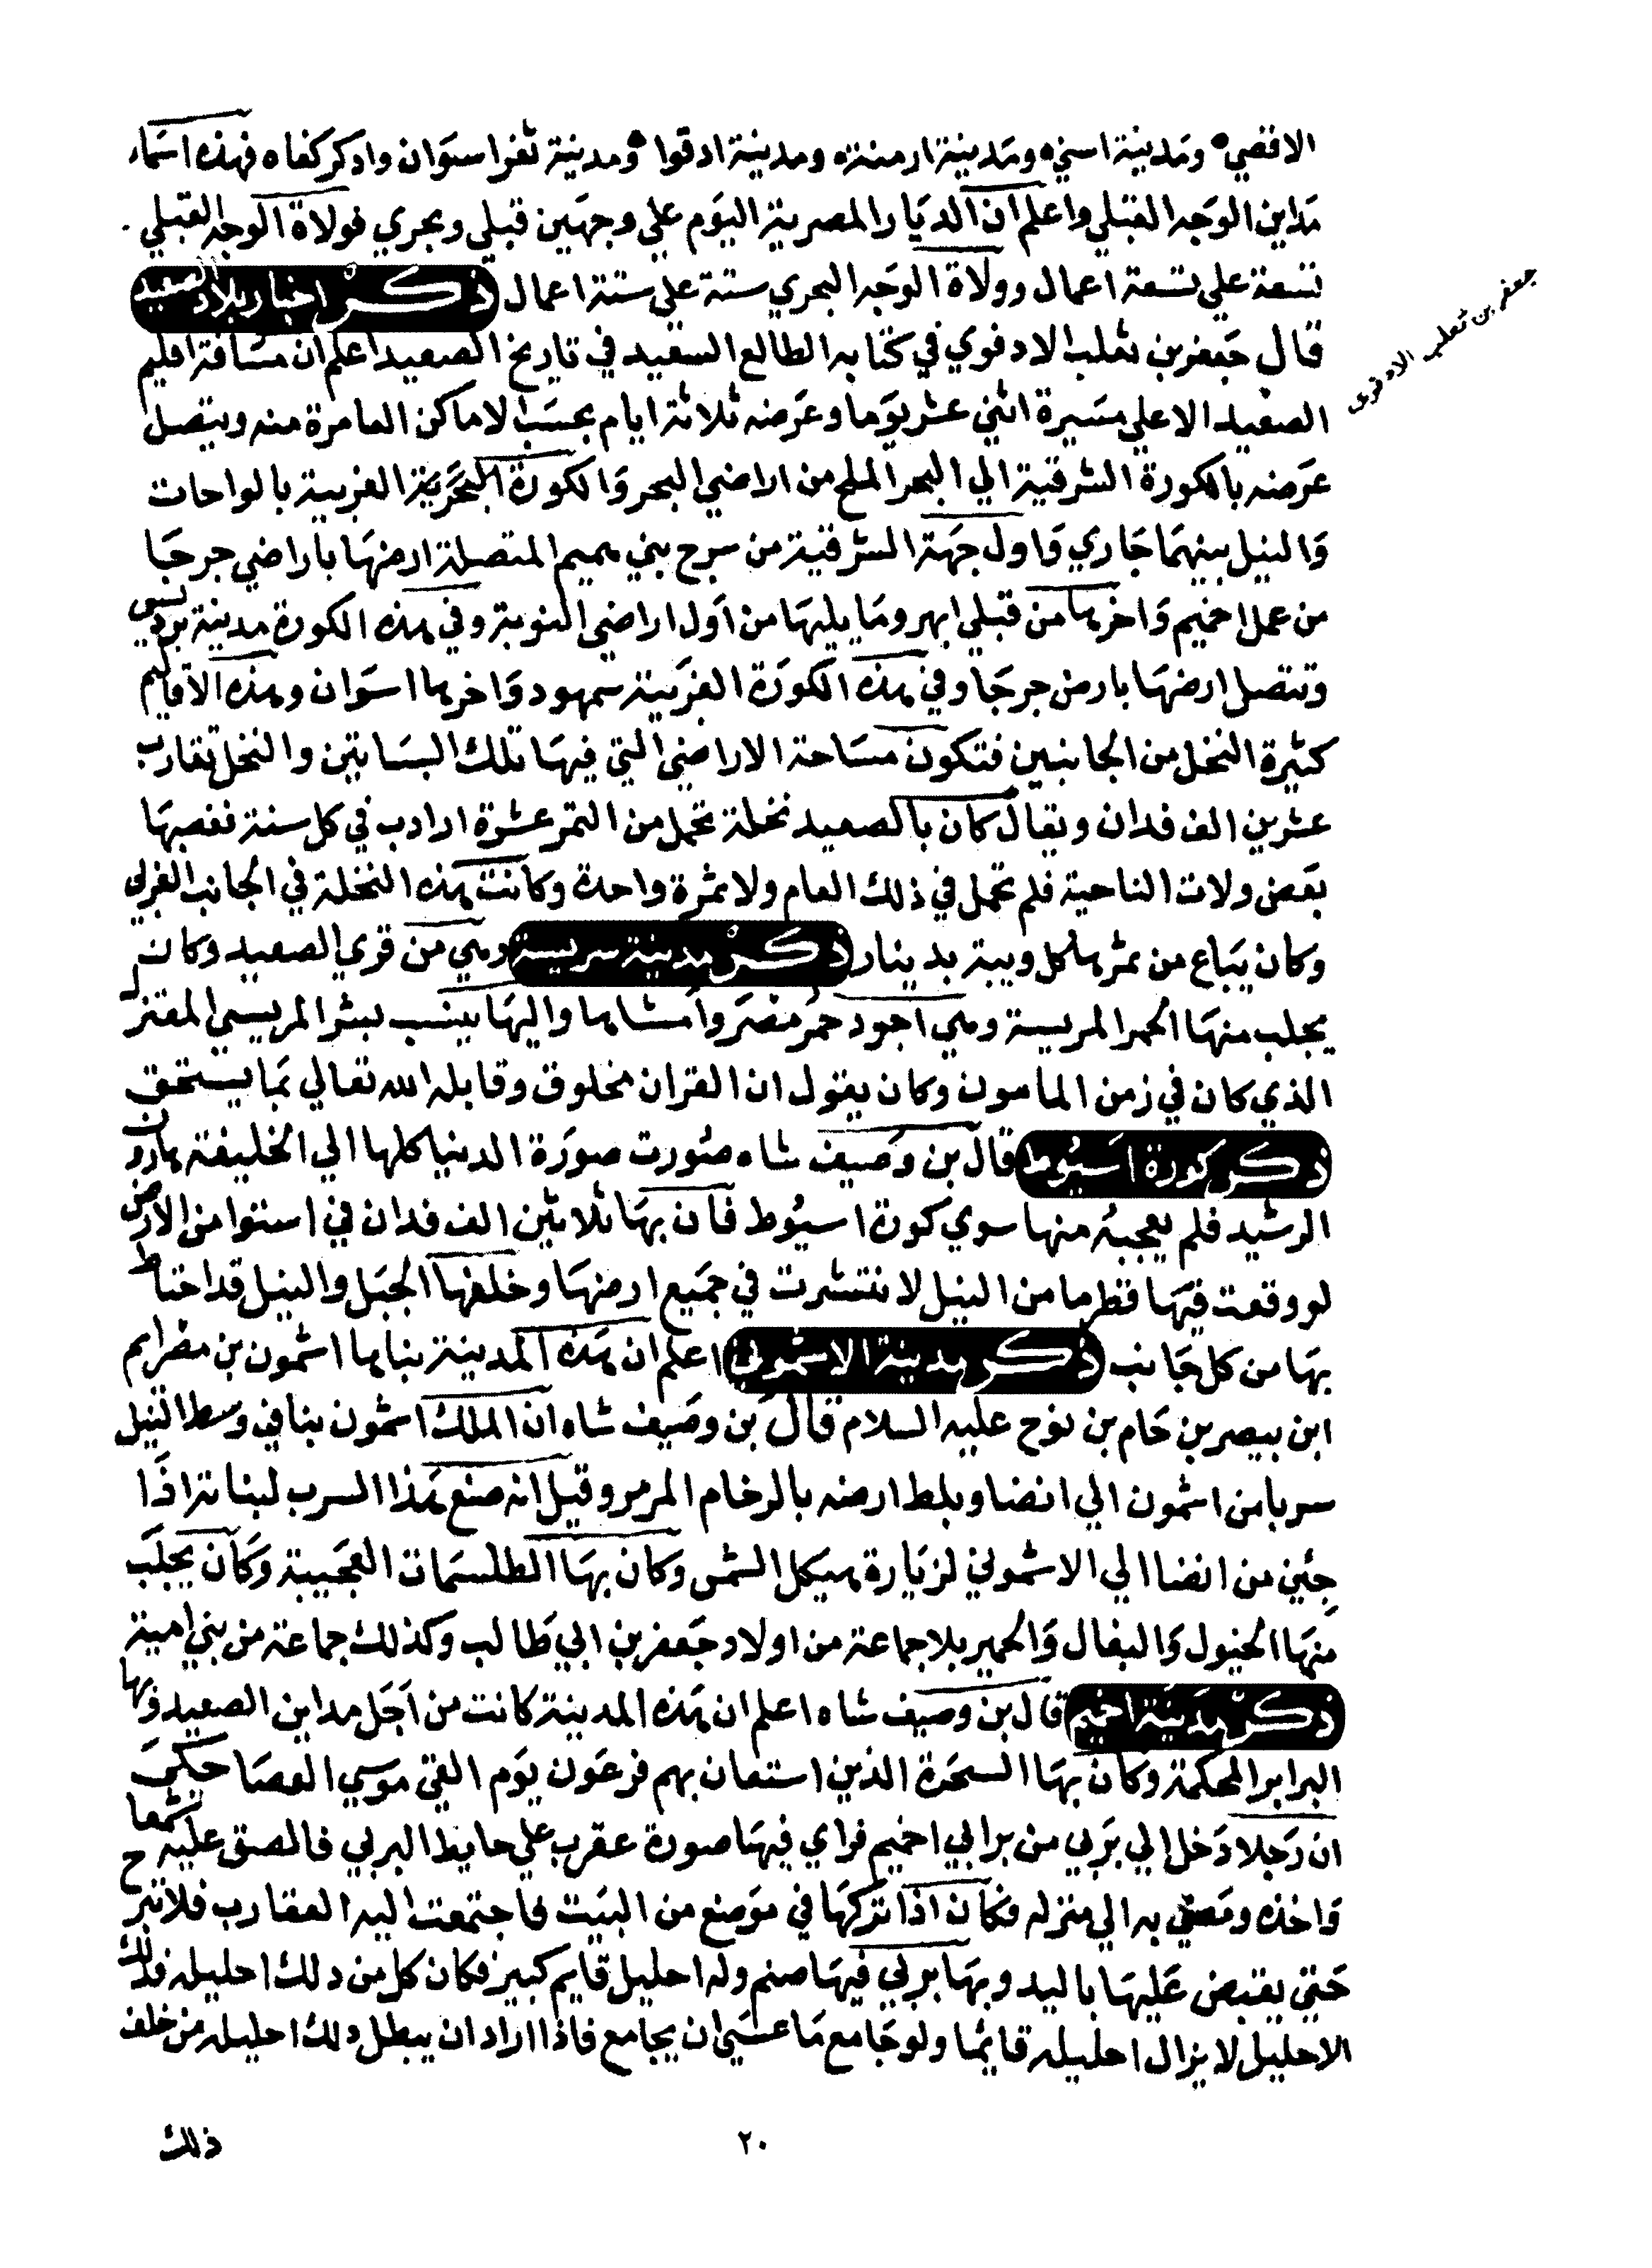 الاقصي ومدينة اسني ومدينة ارمنة ومدينة ادقوا ومدينة ثغر اسوان واد كركفاه فهذه اسماء
مداين الوجه القبلي واعلم ان الديار المصرية اليوم علي وجهين قبلي وبحري فولاة الوجه القبلي
تسعة علي تسعة اعمال وولاة الوجه البحري ستة علي ستة اعمال ذكر اخبار بلاد الصعيد
قال جعفر بن ثعلب الادفوي في كتابه الطالع السعيد في تاريخ الصعيد اعلم ان مسافة اقليم
جعفر بن ثعلب الادفوى
الصعيد الاعلي مسيرة اثني عشر يوما وعرضه ثلاثة ايام بحسب الاماكن العامرة منه ويتصل
عرضه بالكورة الشرقية الي البحر الملح من اراضي البحر والكورة البحرية الغربية بالواحات
والنيل بينهما جاري واول جهة الشرقية من سرج بني هميم المتصلة ارضها باراضي جرجا
من عمل اخميم واخرها من قبلي ابهر وما يليها من اول اراضي النوبة وفي هذه الكورة مدينة برديس
وتتصل ارضها بارض جرجا وفي هذه الكورة الغربية سمهود واخرها اسوان وهذه الاقاليم
كثيرة النخل من الجانبين فتكون مساحة الاراضي التي فيها تلك البساتين والنخل تقارب
عشرين الف فدان ويقال كان بالصعيد نخلة تحمل من التمر عشرة ارادب في كل سنة فغصبها
بعض ولات الناحية فلم تحمل في ذلك العام ولا ثمرة واحدة وكانت هذه النخلة في الجانب الغربي
وكان يباع من ثمرها كل ويبة بدينار ذكر مدينة مريسة وهي من قري الصعيد وكان
يجلب منها الحمر المريسة وهي اجود حمر مضر وامشاها واليها ينسب بشر المريسي المعتزل
الذي كان في زمن المامون وكان يقول ان القران مخلوق وقابله الله تعالي بما يستحق
ذكر كورة اسيوط قال بن وصيف شاه صورت صورة الدنيا كلها الي الخليفة هارون
الرشيد فلم يعجبه منها سوي كورة اسيوط فان بها ثلاثين الف فدان في استوا من الارض
لو وقعت فيها قطر ما من النيل لانتشرت في جميع ارضها وخلفها الجبل والنيل قد احتاط
بها من كل جانب ذكر مدينة الاشمون اعلم ان هذه المدينة بناها اشمون بن مضرايم
ابن بيصر بن حام بن نوح عليه السلام قال بن وصيف شاه ان الملك اشمون بنا في وسط النيل
سربا من اشمون الي انضا وبلط ارضه بالرخام المرمر وقيل انه صنع هذا السرب لبناته اذا
جئين من انضا الي الاشموني لزيارة هيكل الشمس وكان بها الطلسمات العجيبة وكان يجلب
منها الخيول والبغال والحمير بلا جماعة من اولاد جعفر بن ابي طالب وكذلك جماعة من بني امية
ذكر مدينة اخميم قال بن وصيف شاه اعلم ان هذه المدينة كانت من اجل مداين الصعيد وبها
البرابر المحكمة وكان بها السحرة الذين استعان بهم فرعون يوم القي موسي العصا حكي
ان رجلا دخل الي بربي من برابي اخميم فراي فيها صورة عقرب علي حايط البربي فالصق عليه شمعا
واخذه ومضي به الي منزله فكان اذا تركها في موضع من البيت لجا جتمعت اليه العقارب فلا تبرح
حتي يقبض عليها باليد وبها بربي فيها صنم وله احليل قايم كبير فكان كل من دلك احليله فذلك
الاحليل لا يزال احليله قائما ولو جامع ما عسي ان يجامع فاذا اراد ان يبطل دلك احليله من خلف
ذلك
٢٠